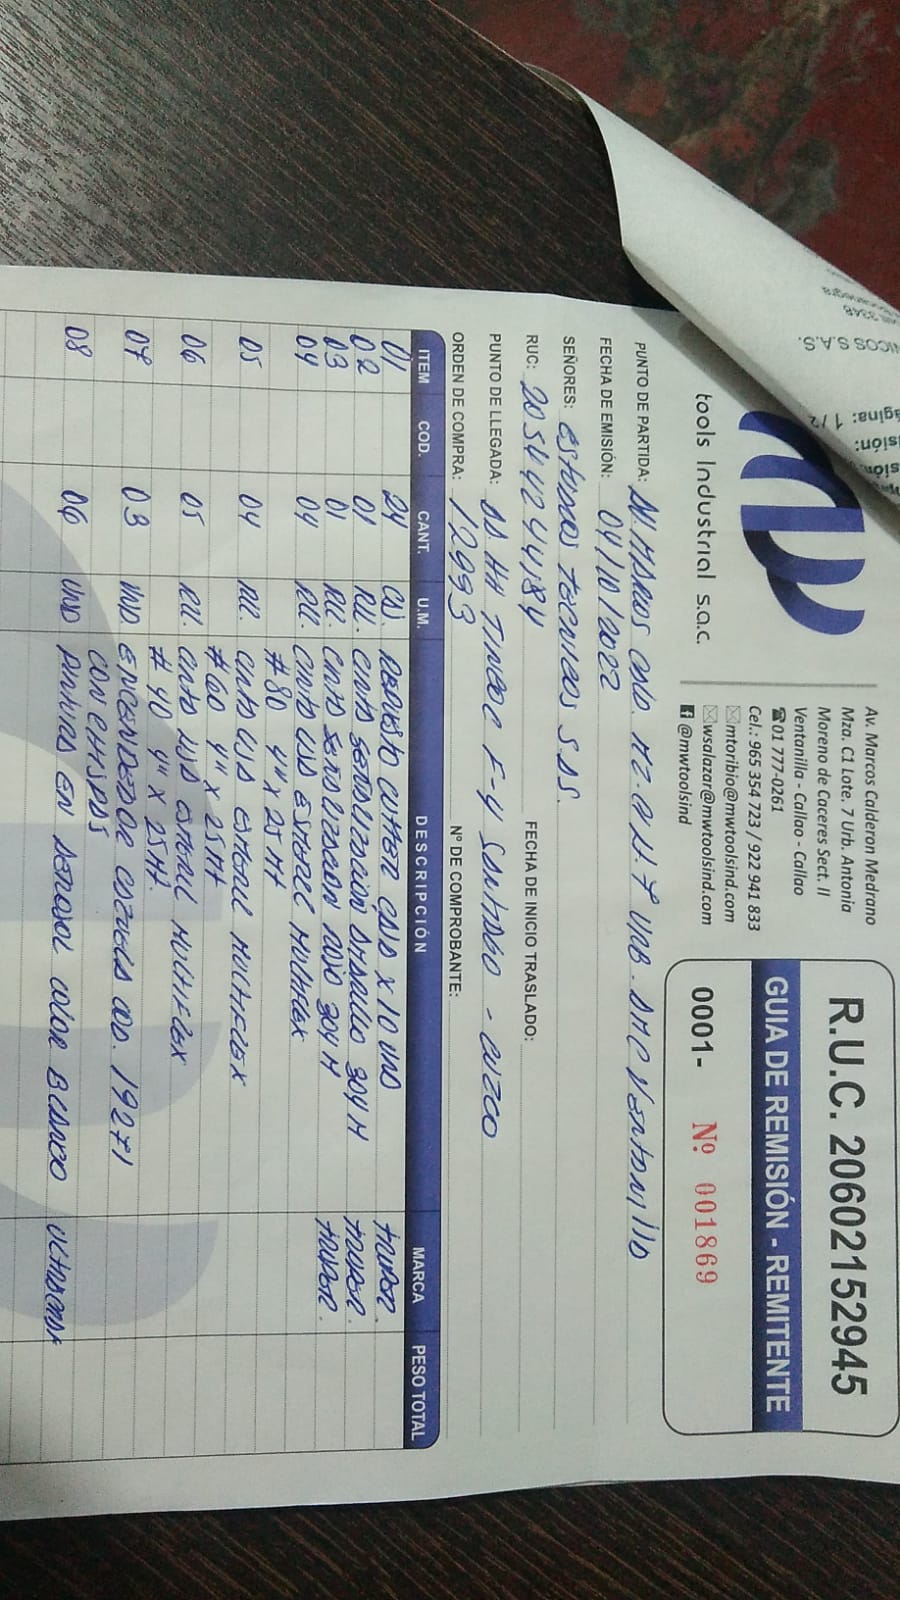 tools Industrial s.a.c.
Av. Marcos Calderon Medrano
Mza. C1 Lote. 7 Urb. Antonia
Moreno de Caceres Sect. II
Ventanilla - Callao - Callao
☎01 777-0261
Cel.: 965 354 723 / 922 941 833
mtoribio@mwtoolsind.com
wsalazar@mwtoolsind.com
@mwtoolsind
R.U.C. 20602152945
GUIA DE REMISIÓN - REMITENTE
0001- Nº 001869
PUNTO DE PARTIDA: AV. MARCOS CALD. MZ. C1 LT. 7 URB. AMC VENTANILLA
FECHA DE EMISIÓN: 04/10/2022
FECHA DE INICIO TRASLADO:
SEÑORES: TECNICOS S.A.S.
RUC: 20544244184
PUNTO DE LLEGADA: AA HH F-4 - CUZCO
ORDEN DE COMPRA: 12993
Nº DE COMPROBANTE:
ITEM COD. CANT. U.M. DESCRIPCIÓN MARCA PESO TOTAL
01 24 CJ. REPUESTO CUTTER CAJA X 10 UND TRUPER.
02 01 RLL. CINTA SEÑALIZACION AMARILLO 304 M TRUPER.
03 01 RLL. CINTA SEÑALIZACION ROJO 304 M TRUPER.
04 04 RLL. CINTA LIJA ESMERIL MULTIFLEX
# 80 4" X 25 MT
05 04 RLL. CINTA LIJA ESMERIL MULTIFLEX
# 60 4" X 25 MT
06 05 RLL. CINTA LIJA ESMERIL MULTIFLEX
# 40 4" X 25 MT.
07 03 UND. ENCENDEDOR COD. 19271
CON CHISPAS
08 06 UND PINTURA EN AEROSOL COLOR BLANCO
ágina: 1 / 2
NICOS S.A.S.